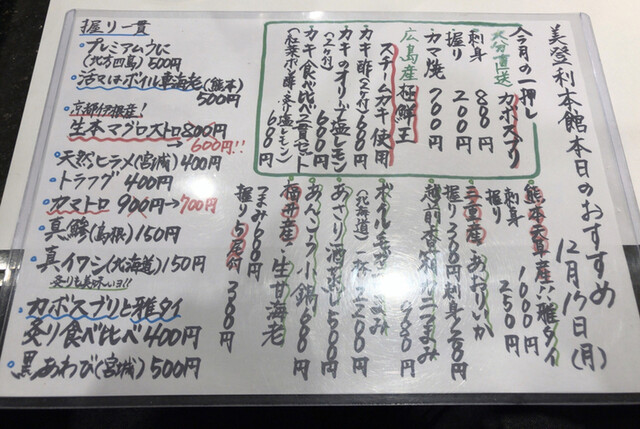 美登利本館本日のおすすめ
12月17日(月)
今月の一押し
大分直送 カボスブリ
刺身 800円
握り 200円
カマ焼 700円
広島産 極鮮王
スチームカキ使用
カキ酢(2ケ付) 600円
カキのオリーブ塩レモン
(2ケ付) 600円
カキ食べ比べ2貫セット
(紅葉ポン酢・炙り塩レモン)
680円
熊本天草産
刺身 1000円
握り 250円
三重産・あおりいか
握り300円 刺身
越前香箱ガニつまみ
980円
ボイル
(北海道)
あさり酒蒸し 500円
あんこう小鍋 880円
福井産・生甘海老
つまみ600円
握り 360円
握り一貫
・プレミアムうに
(北方四島) 500円
・活〆ボイル車海老(熊本)
500円
・京都伊根産!
生本マグロストロ 800円
→600円!!
・天然ヒラメ(宮城)400円
・トラフグ 400円
・カマトロ 900円→700円
・真鯵(島根)150円
・真イワシ(北海道)150円
炙りも美味いヨ!!
・カボスブリと雅ダイ
炙り食べ比べ400円
・黒あわび(宮城)500円